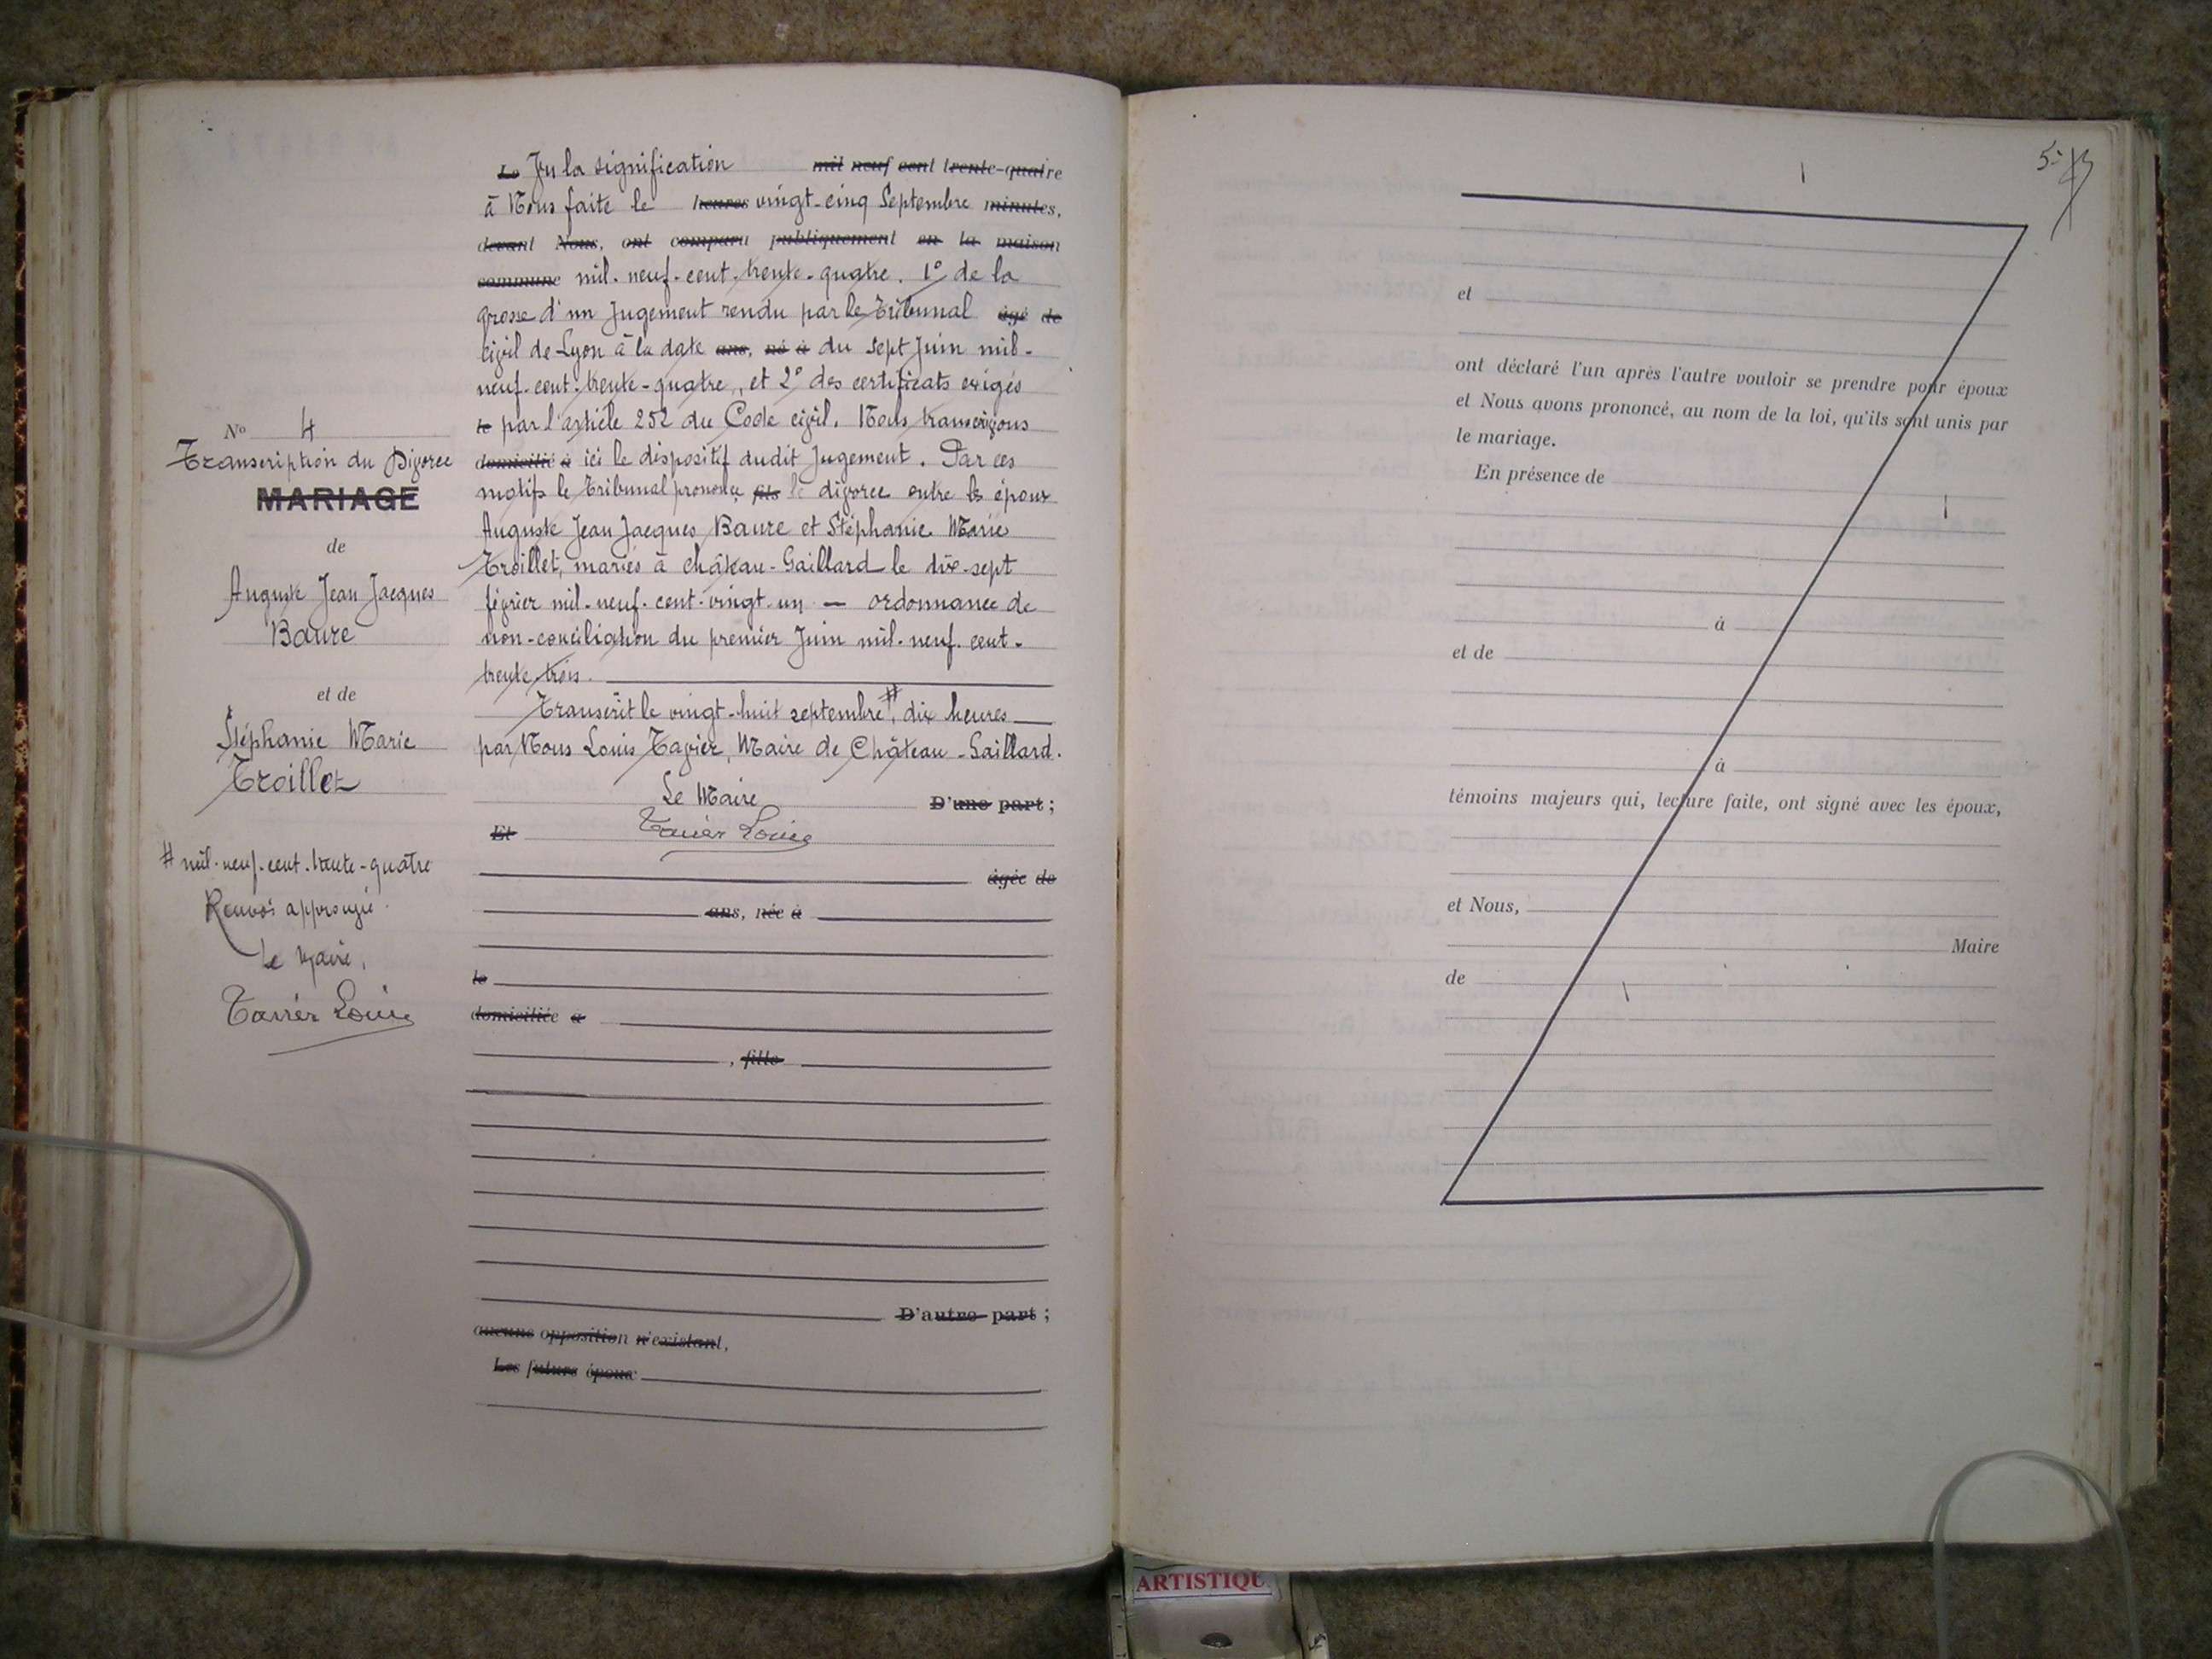 N° 4
Transcription du Divorce
MARIAGE
de
Auguste Jean Jacques
Baure
et de
Stéphanie Marie
Troillet
# mil-neuf-cent-trente-quatre
Renvoi approuvé.
Le Maire,
Tavier Louis
Le Vu la signification mil neuf cent trente-quatre
à Nous faite le heures vingt-cinq Septembre minutes,
devant Nous, ont comparu publiquement en la maison
commune mil-neuf-cent-trente-quatre. 1° de la
grosse d'un Jugement rendu par le Tribunal âgé de
civil de Lyon à la date ans, né à du Sept Juin mil-
neuf-cent-trente-quatre, et 2° des certificats exigés
le par l'article 252 du Code civil. Nous transcrivons
domicilié à ici le dispositif dudit Jugement. Par ces
motifs le Tribunal prononce fils le divorce entre les époux
Auguste Jean Jacques Baure et Stéphanie Marie
Troillet, mariés à Château-Gaillard le dix-sept
février mil-neuf-cent-vingt-un — ordonnance de
non-conciliation du premier Juin mil-neuf-cent-
trente-trois.
Transcrit le vingt-huit septembre #, dix heures
par Nous Louis Tavier, Maire de Château-Gaillard.
Le Maire D'une part ;
Et Tavier Louis
âgée de
ans, née à
le
domiciliée à
, fille
D'autre part ;
aucune opposition n'existant,
Les futurs époux
5
et
ont déclaré l'un après l'autre vouloir se prendre pour époux
et Nous avons prononcé, au nom de la loi, qu'ils sont unis par
le mariage.
En présence de
à
et de
à
témoins majeurs qui, lecture faite, ont signé avec les époux,
et Nous,
Maire
de
ARTISTIQU